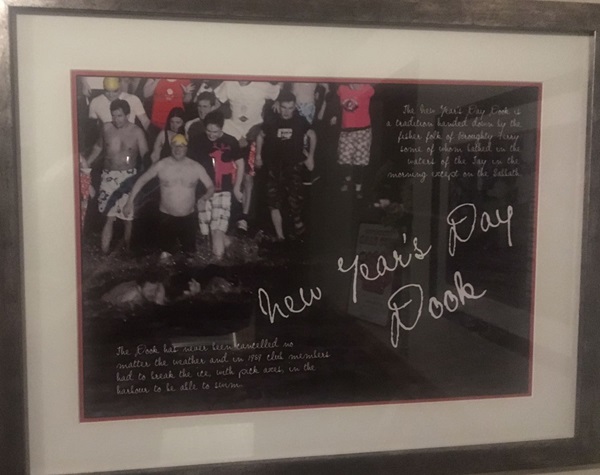 The New Year's Day Dook is
a tradition handed down by the
fisher folk of Broughty Ferry
some of whom bathed in the
waters of the Tay in the
morning except on the Sabbath.
New Year's Day
Dook
The Dook has never been cancelled no
matter the weather and in club members
had to break the ice, with pick axes, in the
harbour to be able to swim.